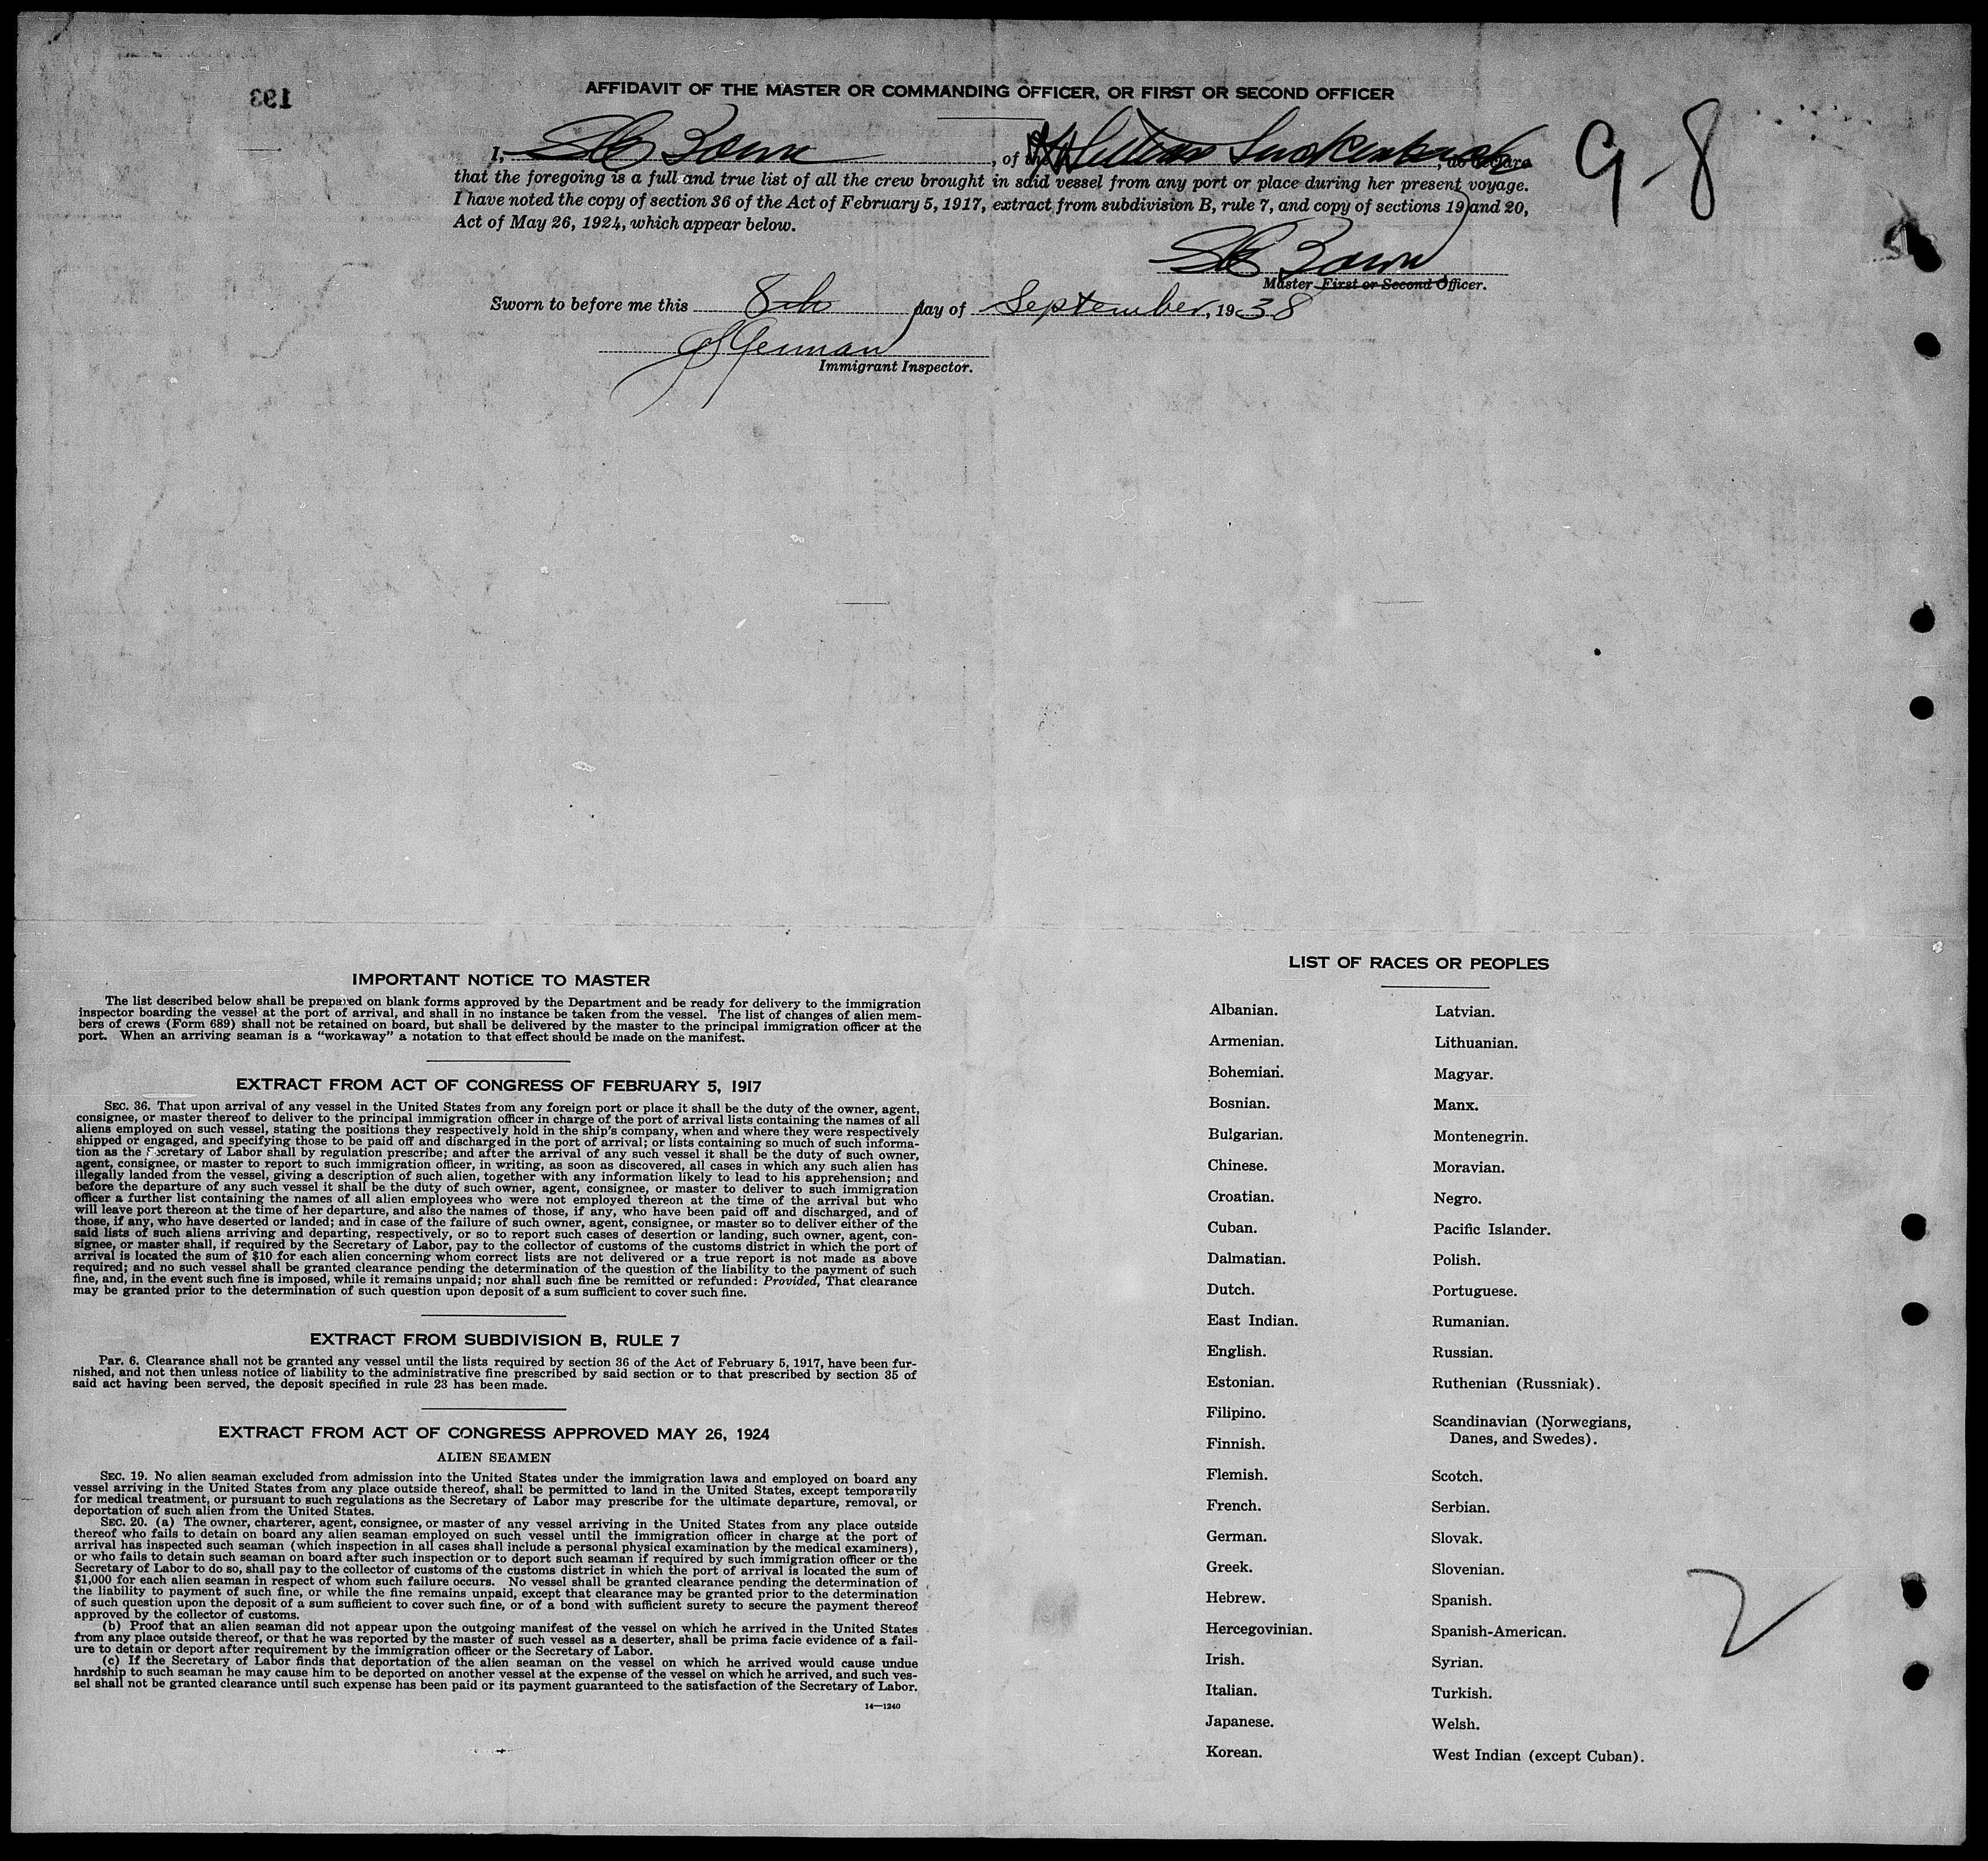 193
AFFIDAVIT OF THE MASTER OR COMMANDING OFFICER, OR FIRST OR SECOND OFFICER
I, , of the William Luckenbach, do declare
that the foregoing is a full and true list of all the crew brought in said vessel from any port or place during her present voyage.
I have noted the copy of section 36 of the Act of February 5, 1917, extract from subdivision B, rule 7, and copy of sections 19 and 20,
Act of May 26, 1924, which appear below.
9-8
Master First or Second Officer.
Sworn to before me this 8th day of September, 1938
Immigrant Inspector.
IMPORTANT NOTICE TO MASTER
The list described below shall be prepared on blank forms approved by the Department and be ready for delivery to the immigration
inspector boarding the vessel at the port of arrival, and shall in no instance be taken from the vessel. The list of changes of alien mem-
bers of crews (Form 689) shall not be retained on board, but shall be delivered by the master to the principal immigration officer at the
port. When an arriving seaman is a “workaway” a notation to that effect should be made on the manifest.
EXTRACT FROM ACT OF CONGRESS OF FEBRUARY 5, 1917
SEC. 36. That upon arrival of any vessel in the United States from any foreign port or place it shall be the duty of the owner, agent,
consignee, or master thereof to deliver to the principal immigration officer in charge of the port of arrival lists containing the names of all
aliens employed on such vessel, stating the positions they respectively hold in the ship's company, when and where they were respectively
shipped or engaged, and specifying those to be paid off and discharged in the port of arrival; or lists containing so much of such informa-
tion as the Secretary of Labor shall by regulation prescribe; and after the arrival of any such vessel it shall be the duty of such owner,
agent, consignee, or master to report to such immigration officer, in writing, as soon as discovered, all cases in which any such alien has
illegally landed from the vessel, giving a description of such alien, together with any information likely to lead to his apprehension; and
before the departure of any such vessel it shall be the duty of such owner, agent, consignee, or master to deliver to such immigration
officer a further list containing the names of all alien employees who were not employed thereon at the time of the arrival but who
will leave port thereon at the time of her departure, and also the names of those, if any, who have been paid off and discharged, and of
those, if any, who have deserted or landed; and in case of the failure of such owner, agent, consignee, or master so to deliver either of the
said lists of such aliens arriving and departing, respectively, or so to report such cases of desertion or landing, such owner, agent, con-
signee, or master shall, if required by the Secretary of Labor, pay to the collector of customs of the customs district in which the port of
arrival is located the sum of $10 for each alien concerning whom correct lists are not delivered or a true report is not made as above
required; and no such vessel shall be granted clearance pending the determination of the question of the liability to the payment of such
fine, and, in the event such fine is imposed, while it remains unpaid; nor shall such fine be remitted or refunded: Provided, That clearance
may be granted prior to the determination of such question upon deposit of a sum sufficient to cover such fine.
EXTRACT FROM SUBDIVISION B, RULE 7
Par. 6. Clearance shall not be granted any vessel until the lists required by section 36 of the Act of February 5, 1917, have been fur-
nished, and not then unless notice of liability to the administrative fine prescribed by said section or to that prescribed by section 35 of
said act having been served, the deposit specified in rule 23 has been made.
EXTRACT FROM ACT OF CONGRESS APPROVED MAY 26, 1924
ALIEN SEAMEN
SEC. 19. No alien seaman excluded from admission into the United States under the immigration laws and employed on board any
vessel arriving in the United States from any place outside thereof, shall be permitted to land in the United States, except temporarily
for medical treatment, or pursuant to such regulations as the Secretary of Labor may prescribe for the ultimate departure, removal, or
deportation of such alien from the United States.
SEC. 20. (a) The owner, charterer, agent, consignee, or master of any vessel arriving in the United States from any place outside
thereof who fails to detain on board any alien seaman employed on such vessel until the immigration officer in charge at the port of
arrival has inspected such seaman (which inspection in all cases shall include a personal physical examination by the medical examiners),
or who fails to detain such seaman on board after such inspection or to deport such seaman if required by such immigration officer or the
Secretary of Labor to do so, shall pay to the collector of customs of the customs district in which the port of arrival is located the sum of
$1,000 for each alien seaman in respect of whom such failure occurs. No vessel shall be granted clearance pending the determination of
the liability to payment of such fine, or while the fine remains unpaid, except that clearance may be granted prior to the determination
of such question upon the deposit of a sum sufficient to cover such fine, or of a bond with sufficient surety to secure the payment thereof
approved by the collector of customs.
(b) Proof that an alien seaman did not appear upon the outgoing manifest of the vessel on which he arrived in the United States
from any place outside thereof, or that he was reported by the master of such vessel as a deserter, shall be prima facie evidence of a fail-
ure to detain or deport after requirement by the immigration officer or the Secretary of Labor.
(c) If the Secretary of Labor finds that deportation of the alien seaman on the vessel on which he arrived would cause undue
hardship to such seaman he may cause him to be deported on another vessel at the expense of the vessel on which he arrived, and such ves-
sel shall not be granted clearance until such expense has been paid or its payment guaranteed to the satisfaction of the Secretary of Labor.
14—1240
LIST OF RACES OR PEOPLES
Albanian.
Armenian.
Bohemian.
Bosnian.
Bulgarian.
Chinese.
Croatian.
Cuban.
Dalmatian.
Dutch.
East Indian.
English.
Estonian.
Filipino.
Finnish.
Flemish.
French.
German.
Greek.
Hebrew.
Hercegovinian.
Irish.
Italian.
Japanese.
Korean.
Latvian.
Lithuanian.
Magyar.
Manx.
Montenegrin.
Moravian.
Negro.
Pacific Islander.
Polish.
Portuguese.
Rumanian.
Russian.
Ruthenian (Russniak).
Scandinavian (Norwegians,
Danes, and Swedes).
Scotch.
Serbian.
Slovak.
Slovenian.
Spanish.
Spanish-American.
Syrian.
Turkish.
Welsh.
West Indian (except Cuban).